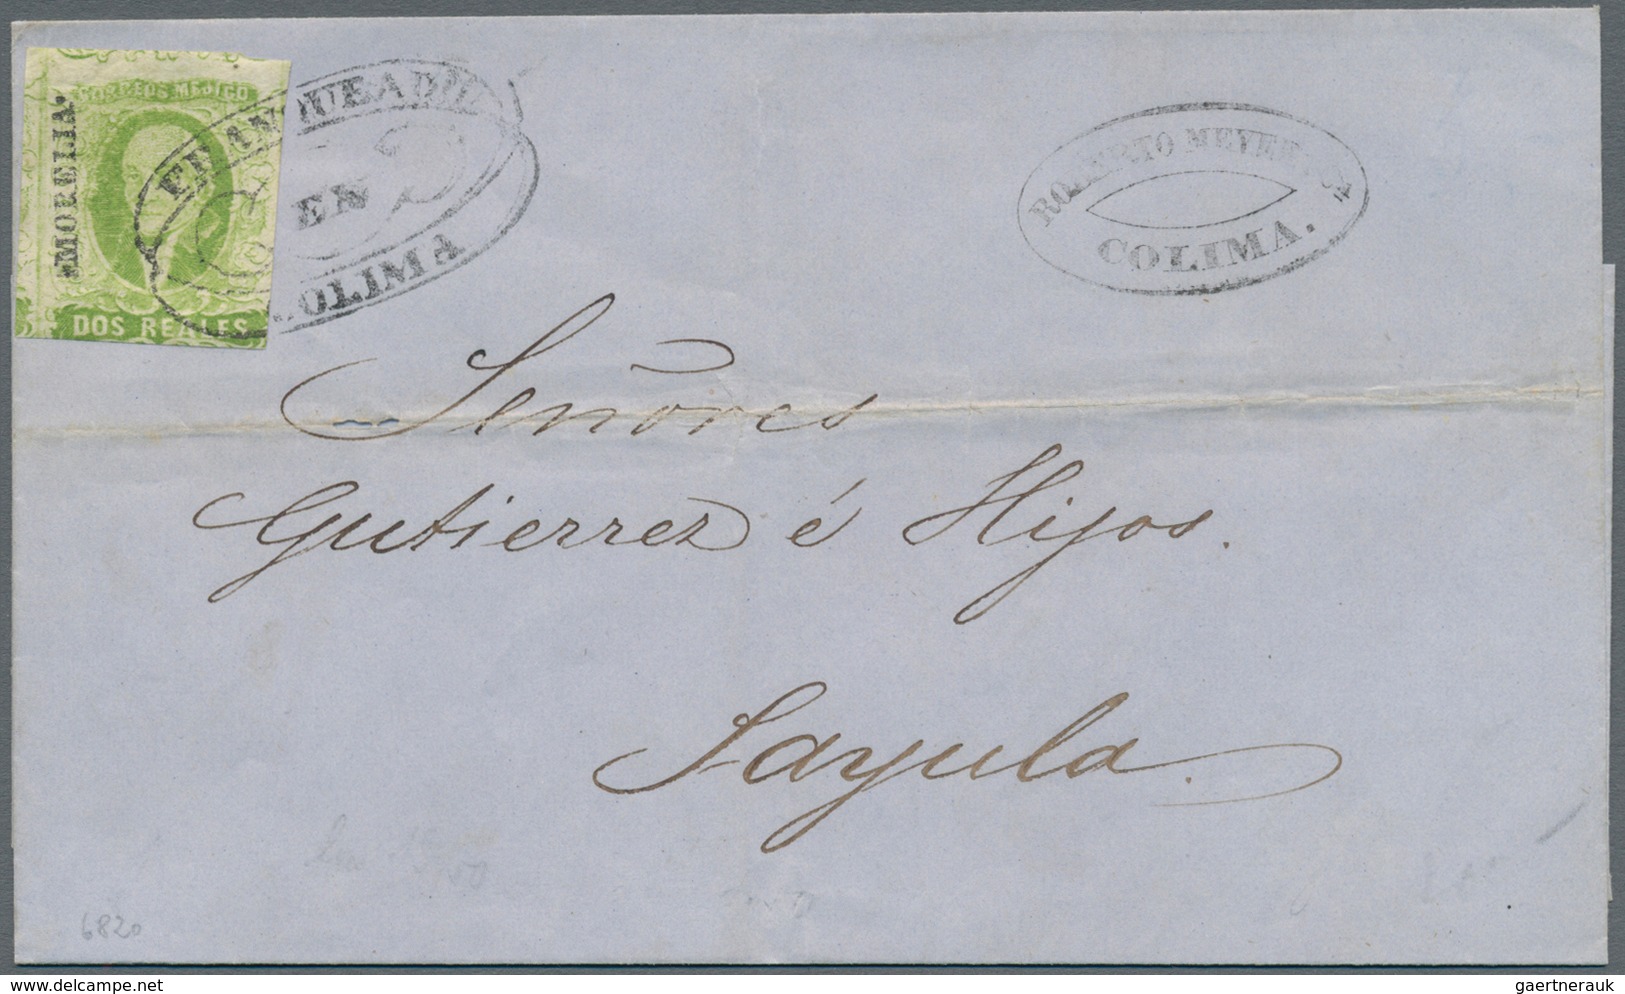 CORREOS MEJICO
MORELIA.
DOS REALES
FRANQUEADO
EN
COLIMA
ROBERTO MEYER
COLIMA.
Señores
Gutierrez é Hijos.
Sayula.
6820
delcampe.net
gaertnerauk